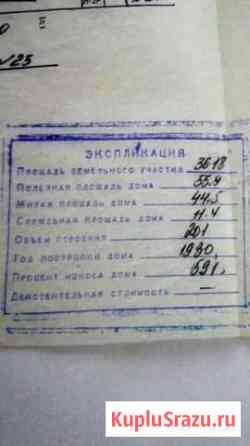 №25
ЭКСПЛИКАЦИЯ
ПЛОЩАДЬ ЗЕМЕЛЬНОГО УЧАСТКА 3618
ПОЛЕЗНАЯ ПЛОЩАДЬ ДОМА 55.9
ЖИЛАЯ ПЛОЩАДЬ ДОМА 44,5
СЛУЖЕБНАЯ ПЛОЩАДЬ ДОМА 11.4
ОБЪЕМ СТРОЕНИЯ 201
ГОД ПОСТРОЙКИ ДОМА 1930,
ПРОЦЕНТ ИЗНОСА ДОМА
ДЕЙСТВИТЕЛЬНАЯ СТОИМОСТЬ —
KupluSrazu.ru